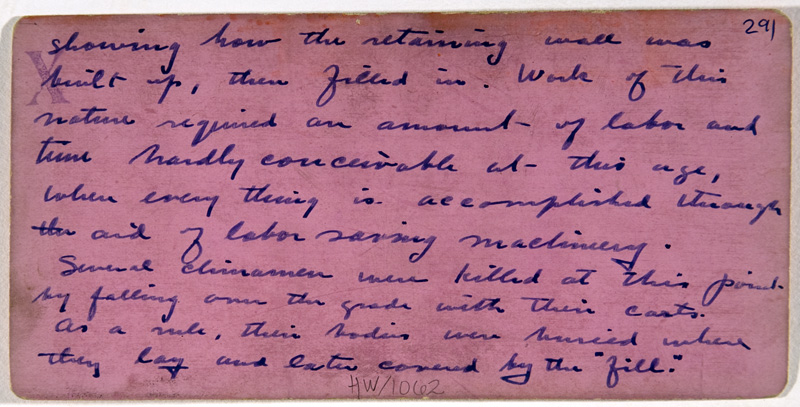 291
showing how the retaining wall was
built up, then filled in. Work of this
nature required an amount of labor and
time hardly conceivable at this age,
when every thing is accomplished through
the aid of labor saving machinery.
Several chinamen were killed at this point
by falling over the grade with their carts.
As a rule, their bodies were buried where
they lay and later covered by the "fill."
HW/1062